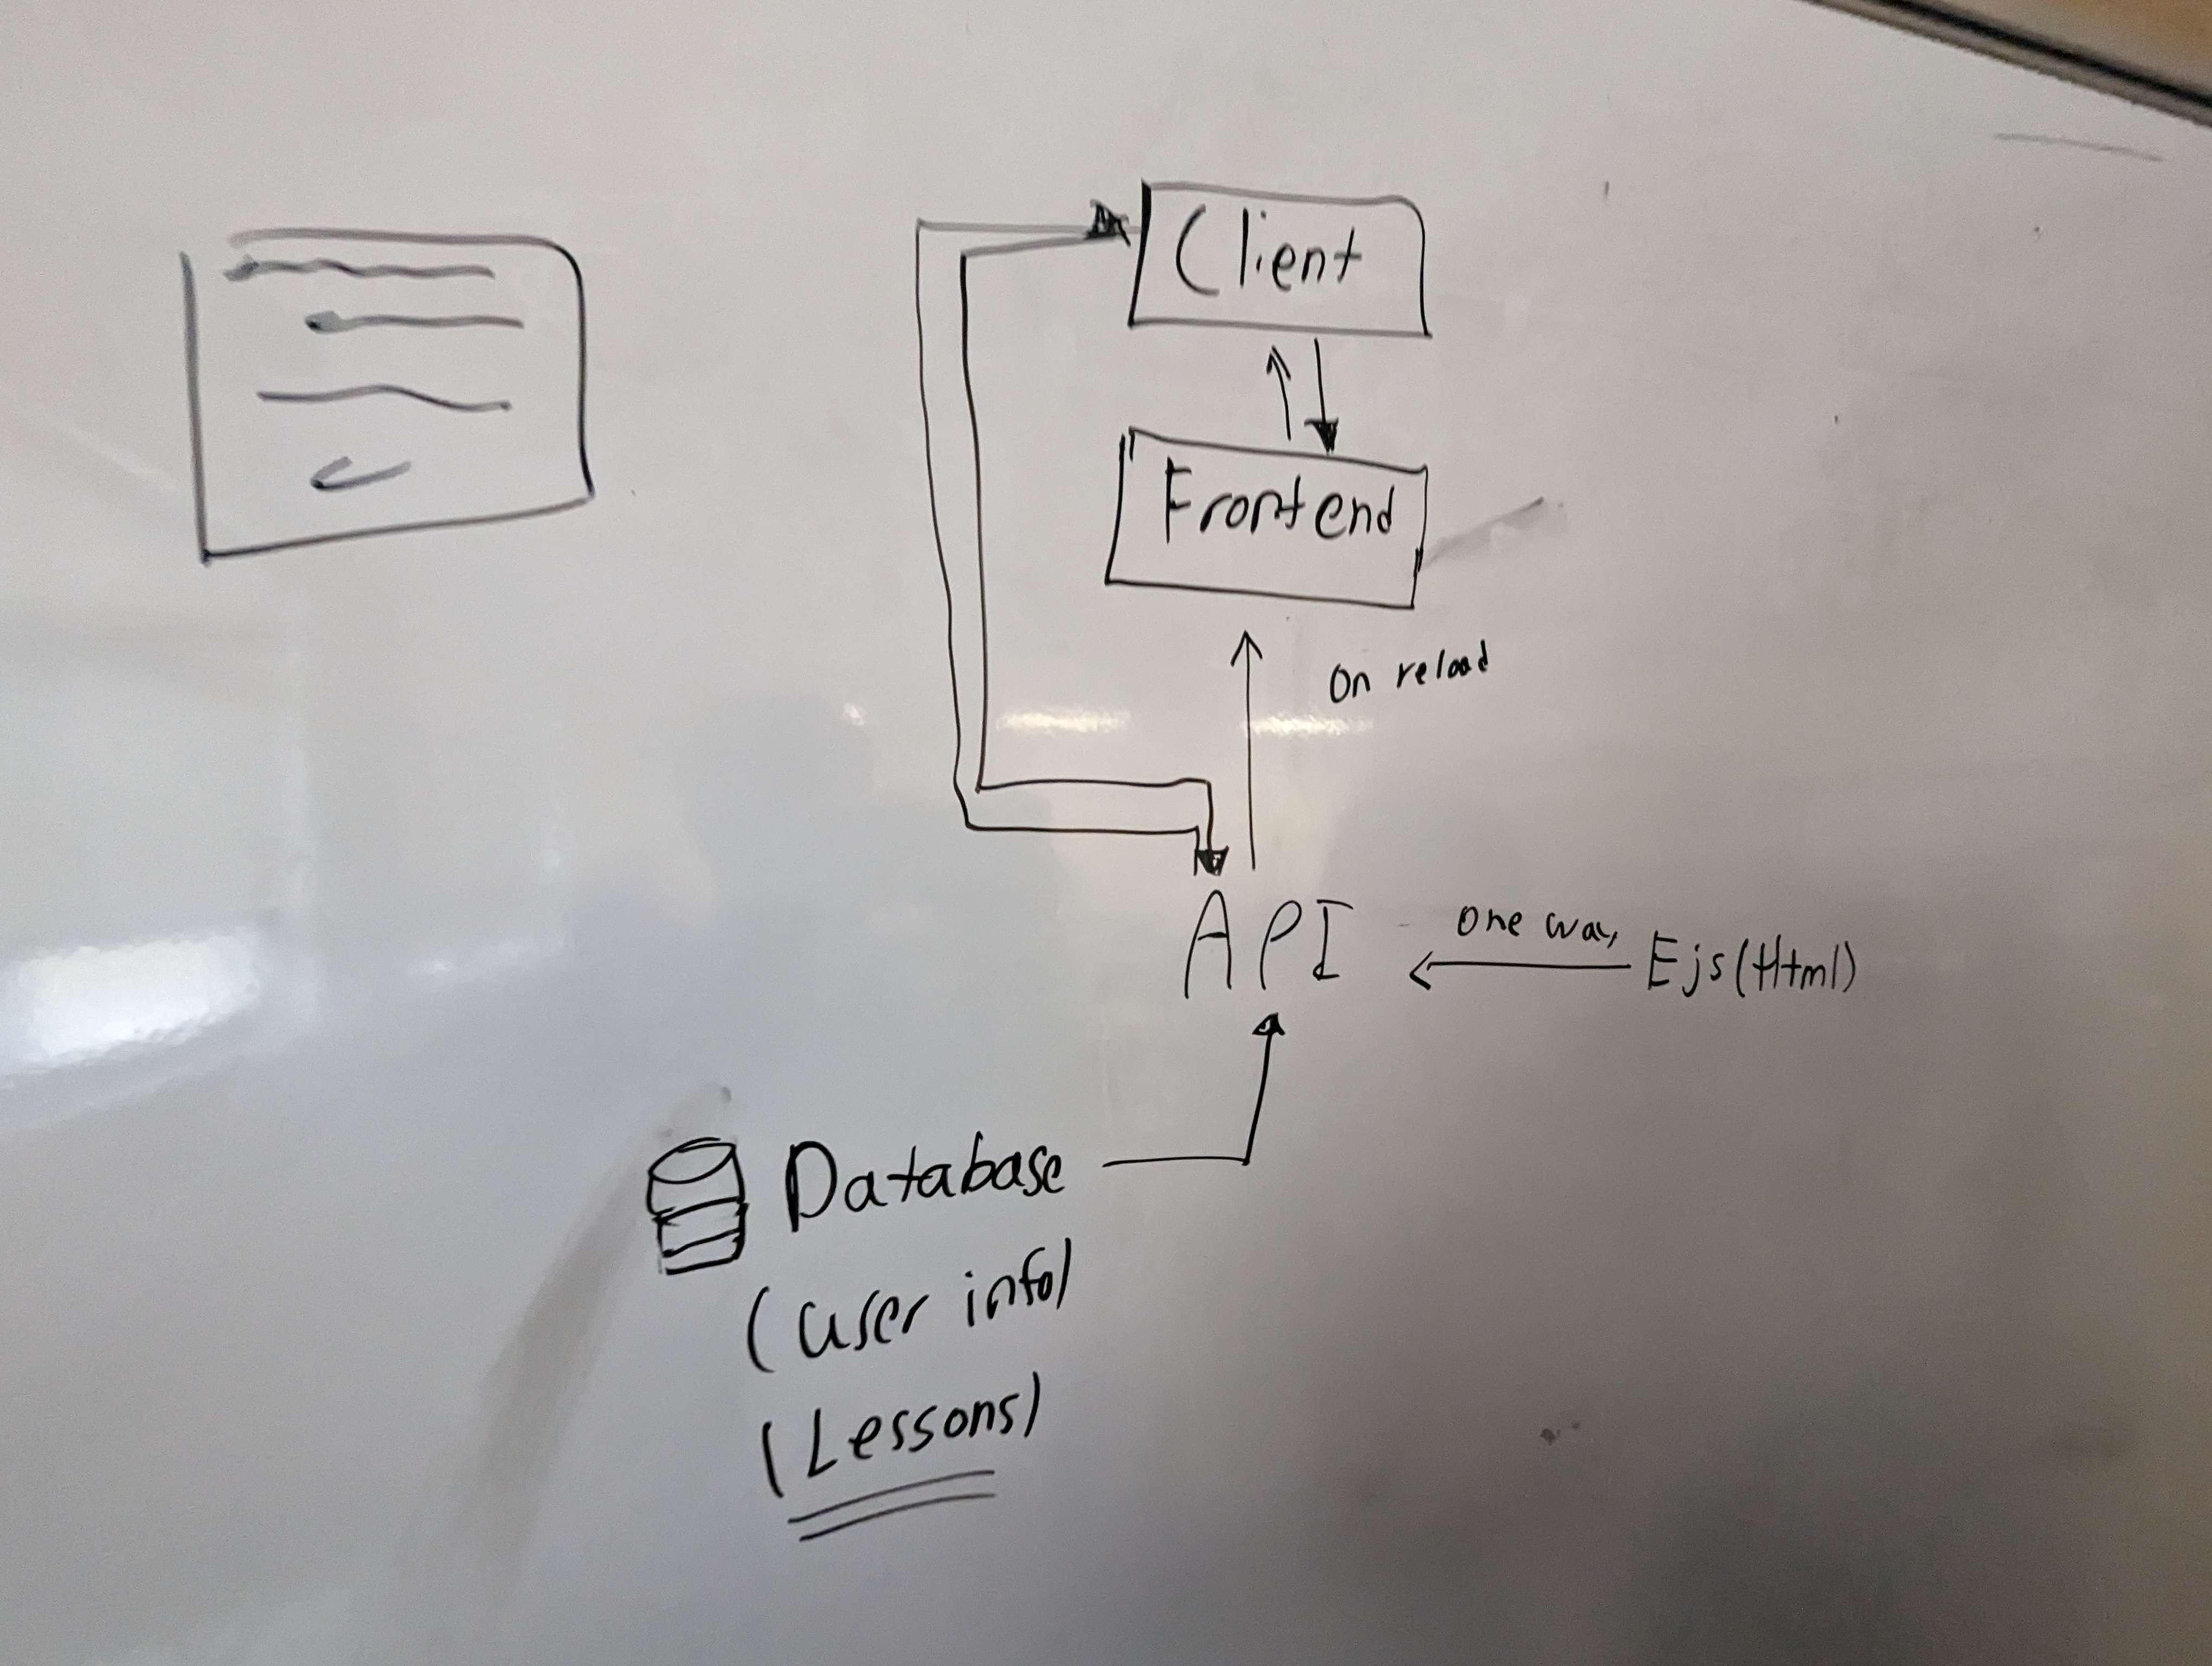 Client
Frontend
On reload
API
one way
Ejs(Html)
Database
(user info)
(Lessons)